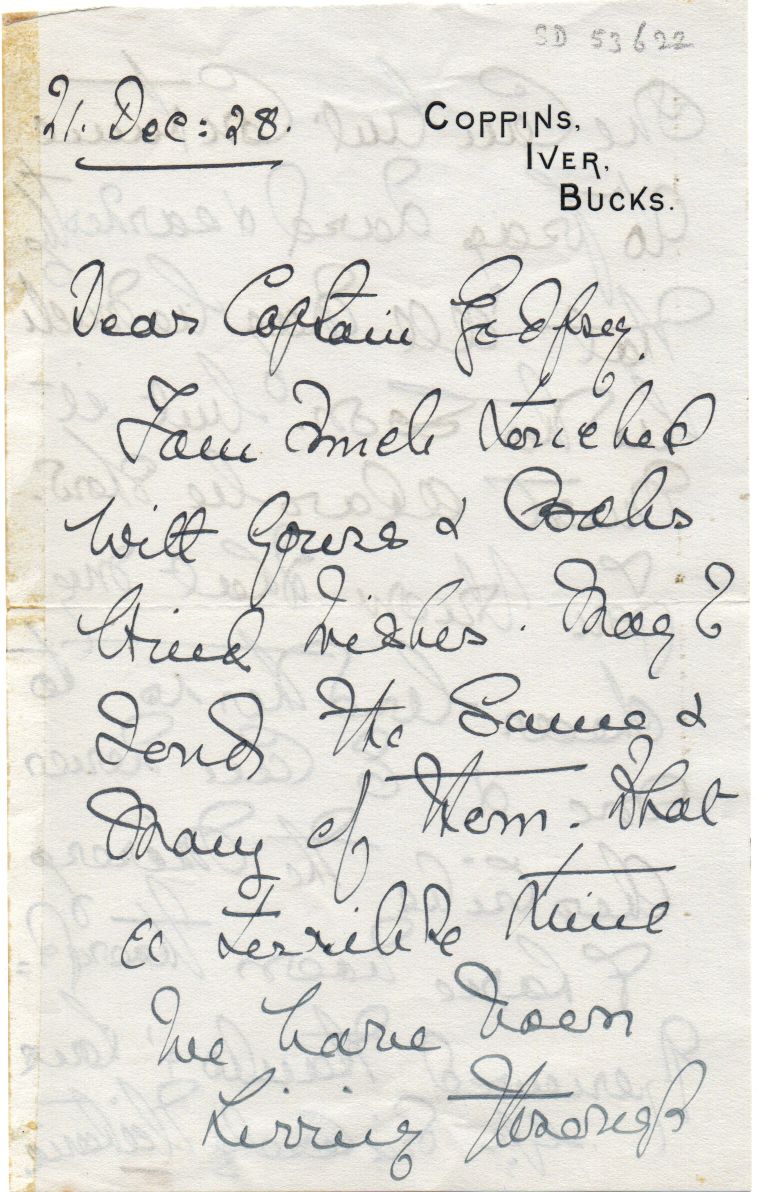 SD 53622
21. Dec: 28.
COPPINS,
IVER,
BUCKS.
Dear Captain Godfrey,
I am much touched
with yours &
kind wishes. May I
send the same &
many of them. What
a terrible time
we have been
living through